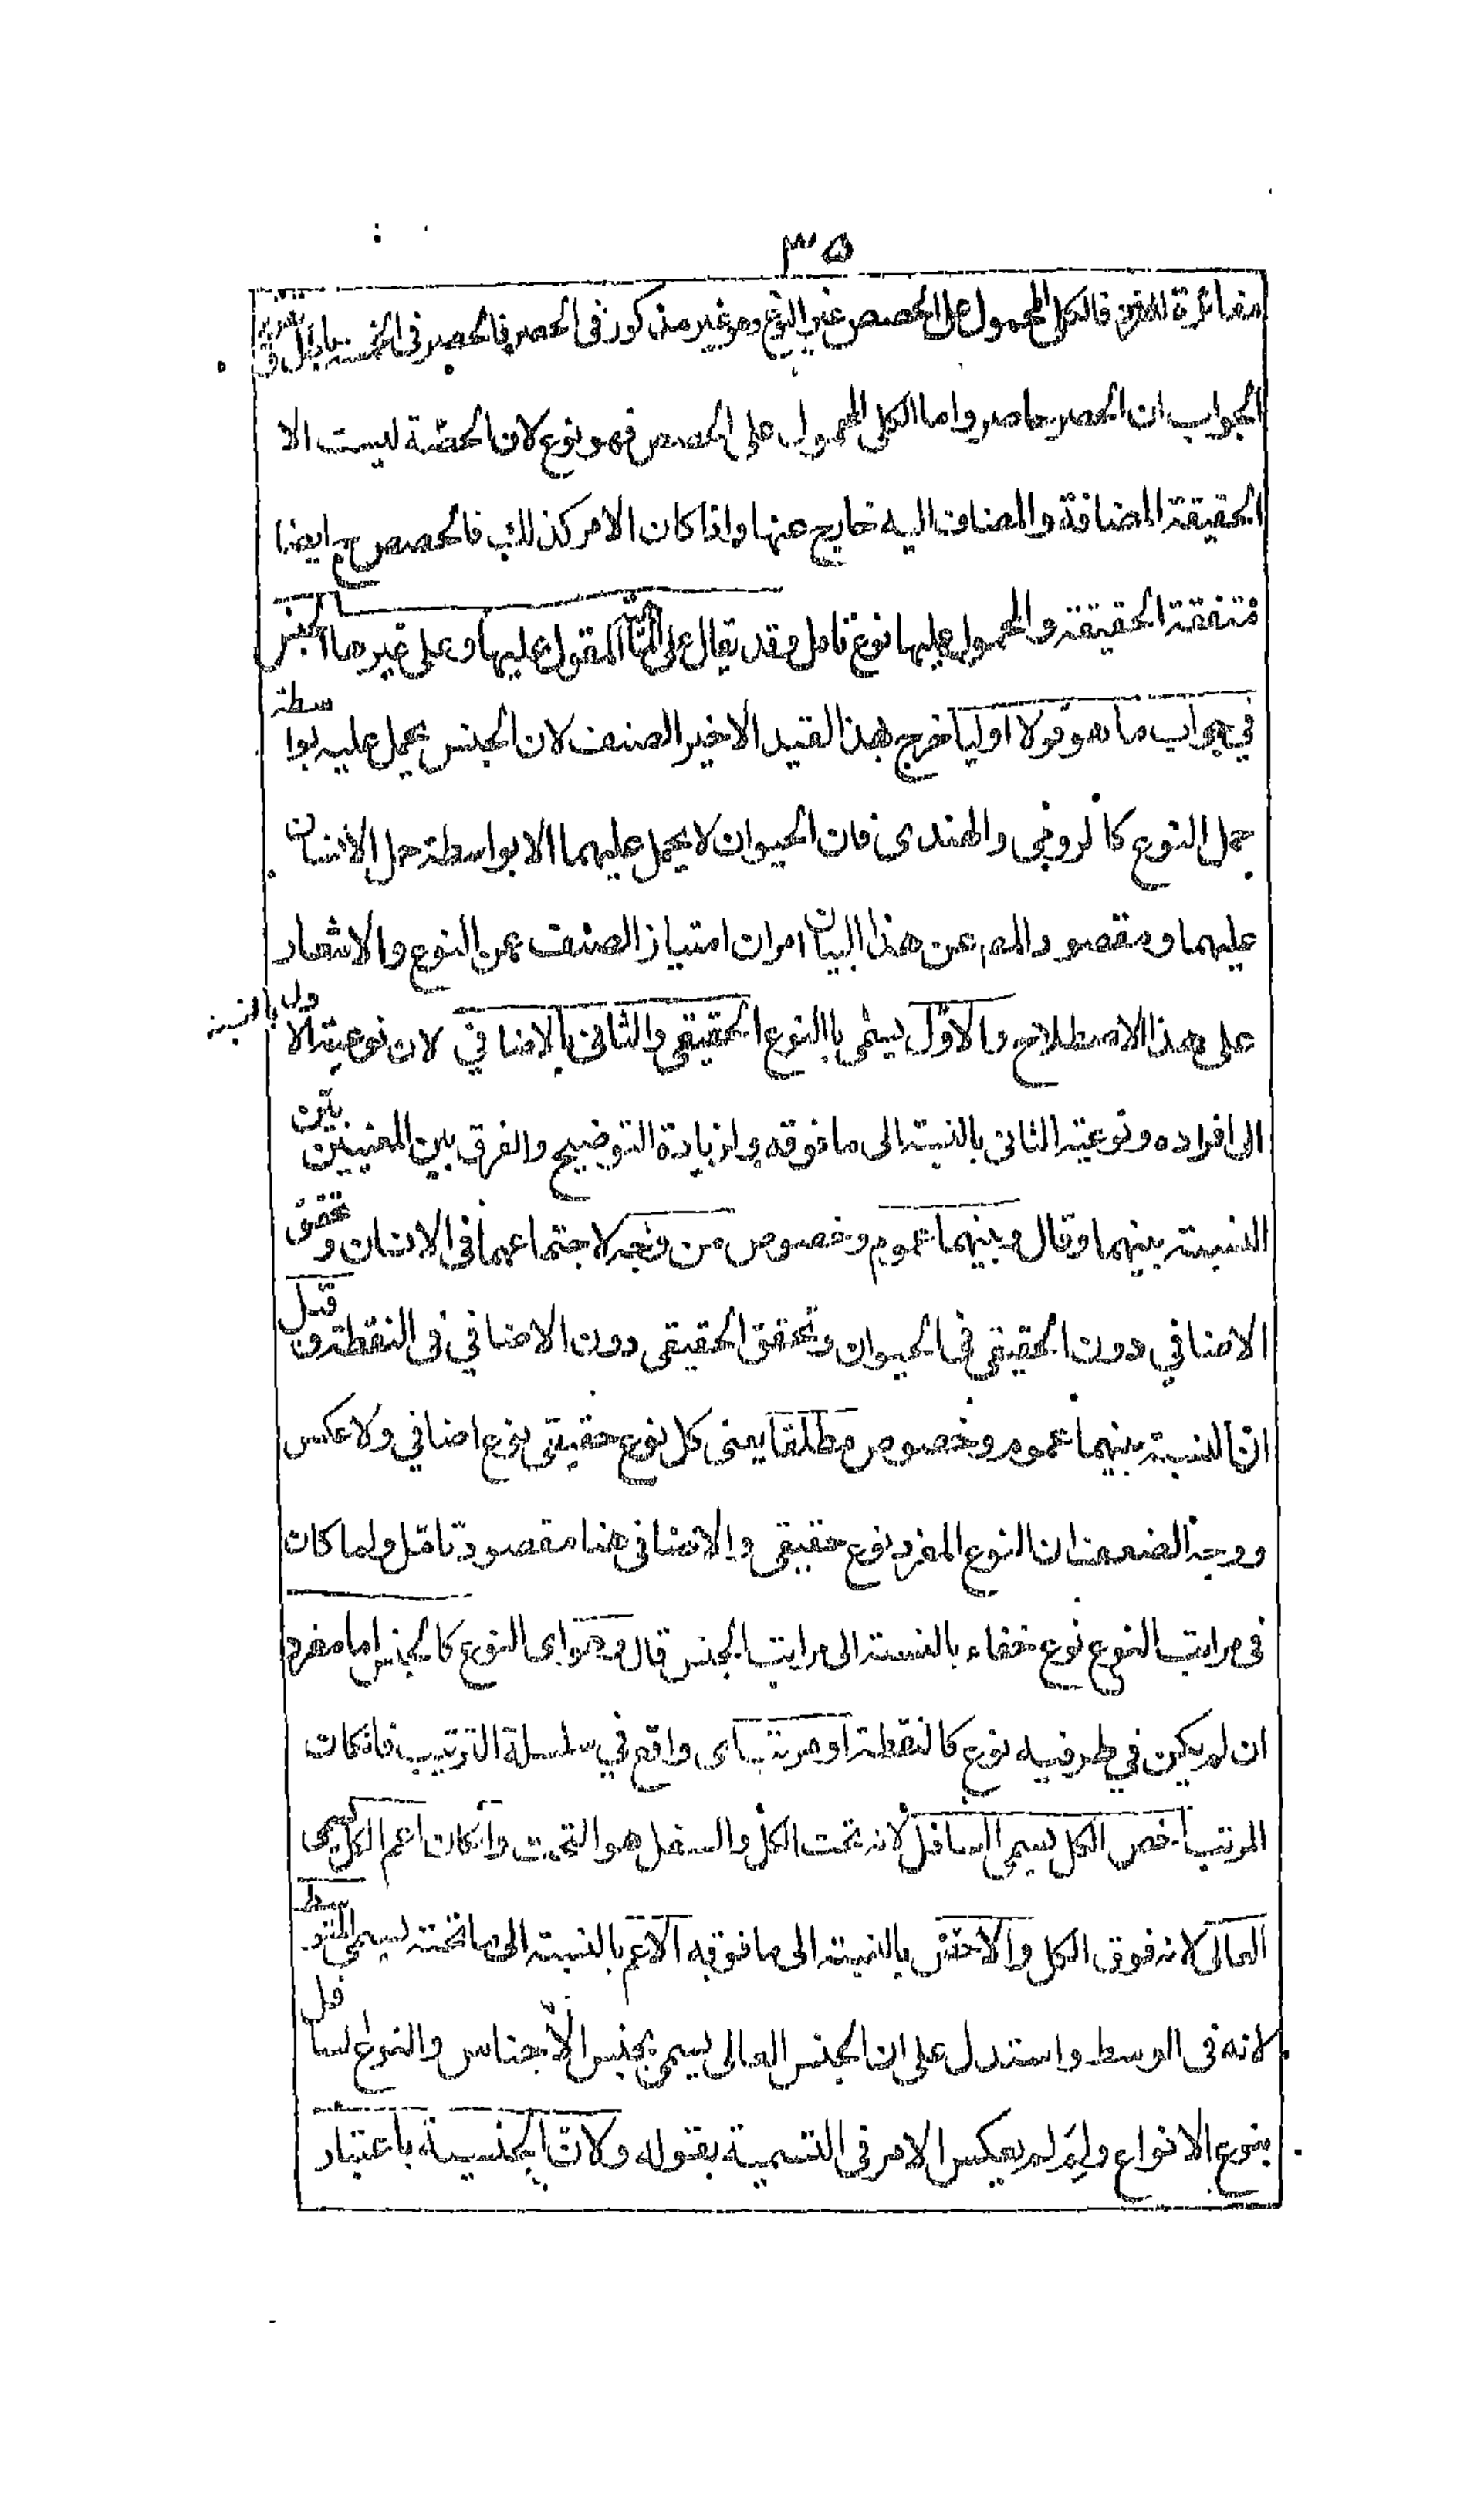 ٣٥
مغائرة للفرد فالكلى المحمول على الحصص غير النوع وهو غير مذكور فى الحصر فالحصر فى الخمسة باطل
الجواب ان الحصر حاصر واما الكلى المحمول على الحصص فهو نوع لان الحصة ليست الا
الحقيقة المضافة والمضاف اليه خارج عنها واذا كان الامر كذلك فالحصص ح ايضا
متفقة الحقيقة والمحمول عليها نوع تامل وقد يقال على المقول عليها وعلى غيرها الجنس
في جواب ما هو قولا اوليا خرج بهذا القيد الاخير الصنف لان الجنس يحمل عليه بواسطة
حمل النوع كالرومي والهندى فان الحيوان لا يحمل عليهما الا بواسطة حمل الانسان
عليهما ومقصود المصـ عن هذا البيان امران امتياز الصنف عن النوع والاشعار
على هذا الاصطلاح والاوّل يسمٰى بالنوع الحقيقى والثانى بالاضافي لان نوعية الاول بالنسبة
الى افراده ونوعية الثانى بالنسبة الى ما فوقه ولزيادة التوضيح والفرق بين المعنيين بيّن
النسبة بينهما وقال وبينهما عموم وخصوص من وجه لاجتماعهما فى الانسان وتحقق
الاضافي دون الحقيقى فى الحيوان وتحقق الحقيقى دون الاضافي فى النقطة وقيل
ان النسبة بينهما عموم وخصوص مطلقا يعنى كل نوع حقيقى نوع اضافي ولا عكس
ووجه الضعف ان النوع المفرد نوع حقيقى والاضافى هنا مقصود تامّل ولما كان
فى مراتب النوع نوع خفاء بالنسبة الى مراتب الجنس قال وهو اى النوع كالجنس اما مفرد
ان لم يكن في طرفيه نوع كالنقطة او مرتب اى واقع في سلسلة الترتيب فانكان
المرتب اخص الكل يسمى السافل لانه تحت الكل والسفل هو التحت وانكان اعم الكل يسمى
العالى لانه فوق الكل والاخصّ بالنسبة الى ما فوقه الاعم بالنسبة الى ما تحته يسمى المتوسط
لانه فى الوسط واستدل على ان الجنس العالى يسمى بجنس الاجناس والنوع السافل
بنوع الانواع ولِمَ لم يعكس الامر فى التسمية بقوله ولانّ الجنسية باعتبار